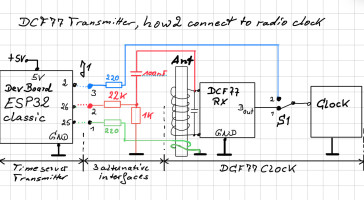 DCF77 Transmitter, how2 connect to radio clock
+5Vo
J1
Ant
5V
220
100nF
DevBoard
ESP32
classic
2
3
22K
26
2
1K
25
1
220
GND
DCF77
RX
Dout
GND
2
1
S1
Clock
Timeserver
Transmitter
3 alternative
interfaces
DCF77 Clock